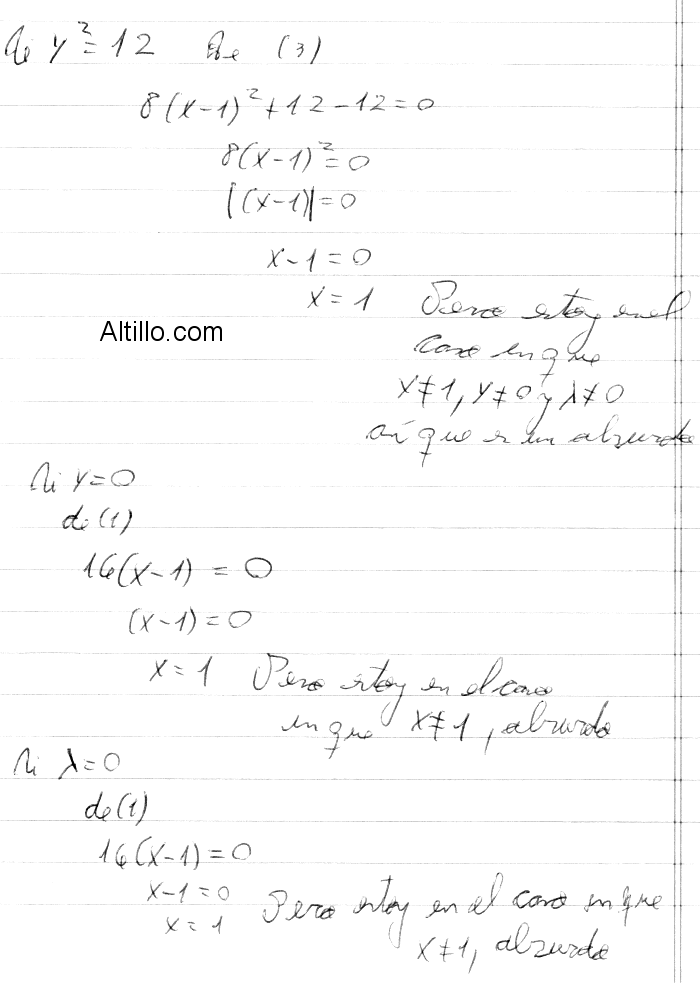 Si y²=12 De (3)
8(x-1)²+12-12=0
8(x-1)²=0
|(x-1)|=0
x-1=0
x=1 Pero estoy en el
caso en que
Altillo.com
x≠1, y≠0 y λ≠0
así que es un absurdo
Si y=0
de (1)
16(x-1) = 0
(x-1)=0
x=1 Pero estoy en el caso
en que x≠1, absurdo
Si λ=0
de (1)
16(x-1)=0
x-1=0
x=1 Pero estoy en el caso en que
x≠1, absurdo